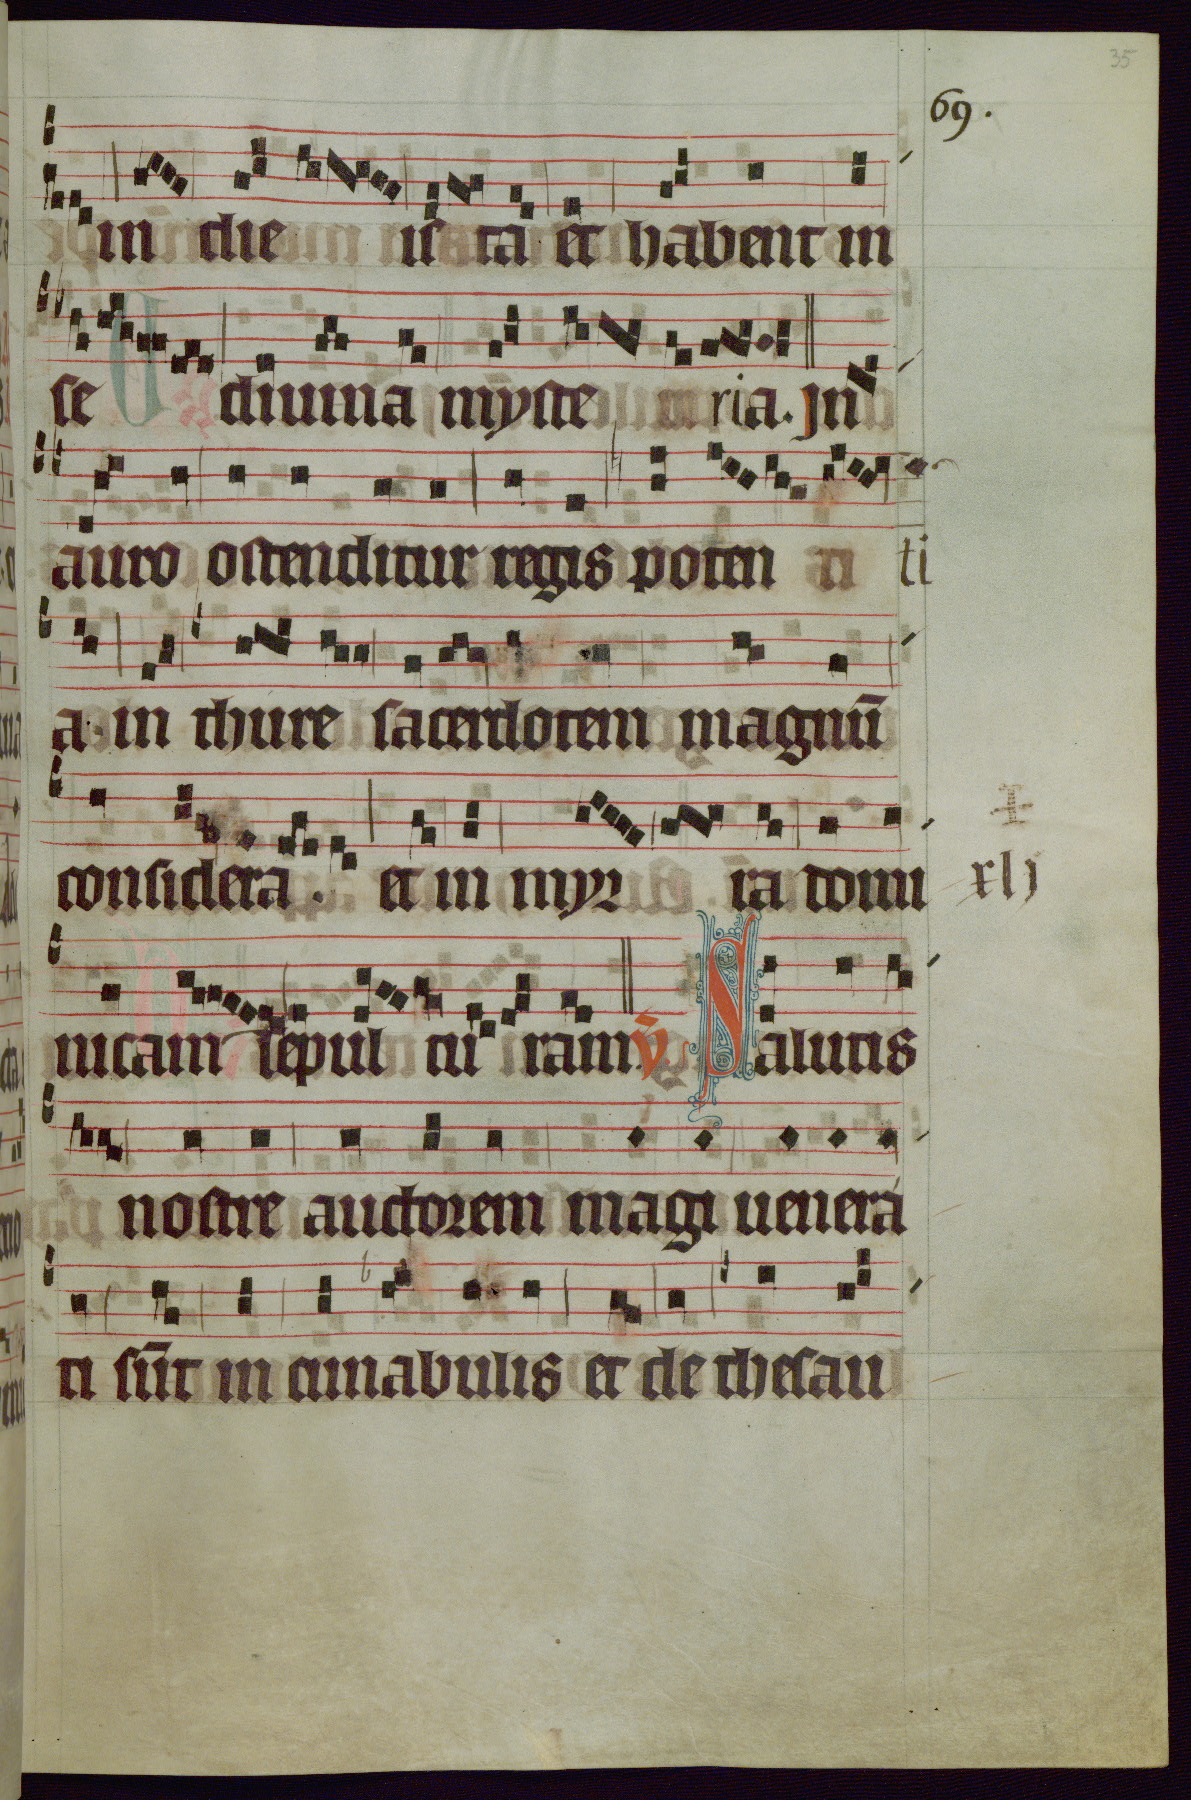 35
69.
in die is ta et habent in
se divina mȳste ria. Jn
auro ostenditur regis poten ti
a. in thure sacerdotem magnū
considera. et in myr ra domi
xlj
nicam sepul tu ram. v̄ Salutis
nostre auctorem magi venerā
ti sūt in cunabulis et de thesau